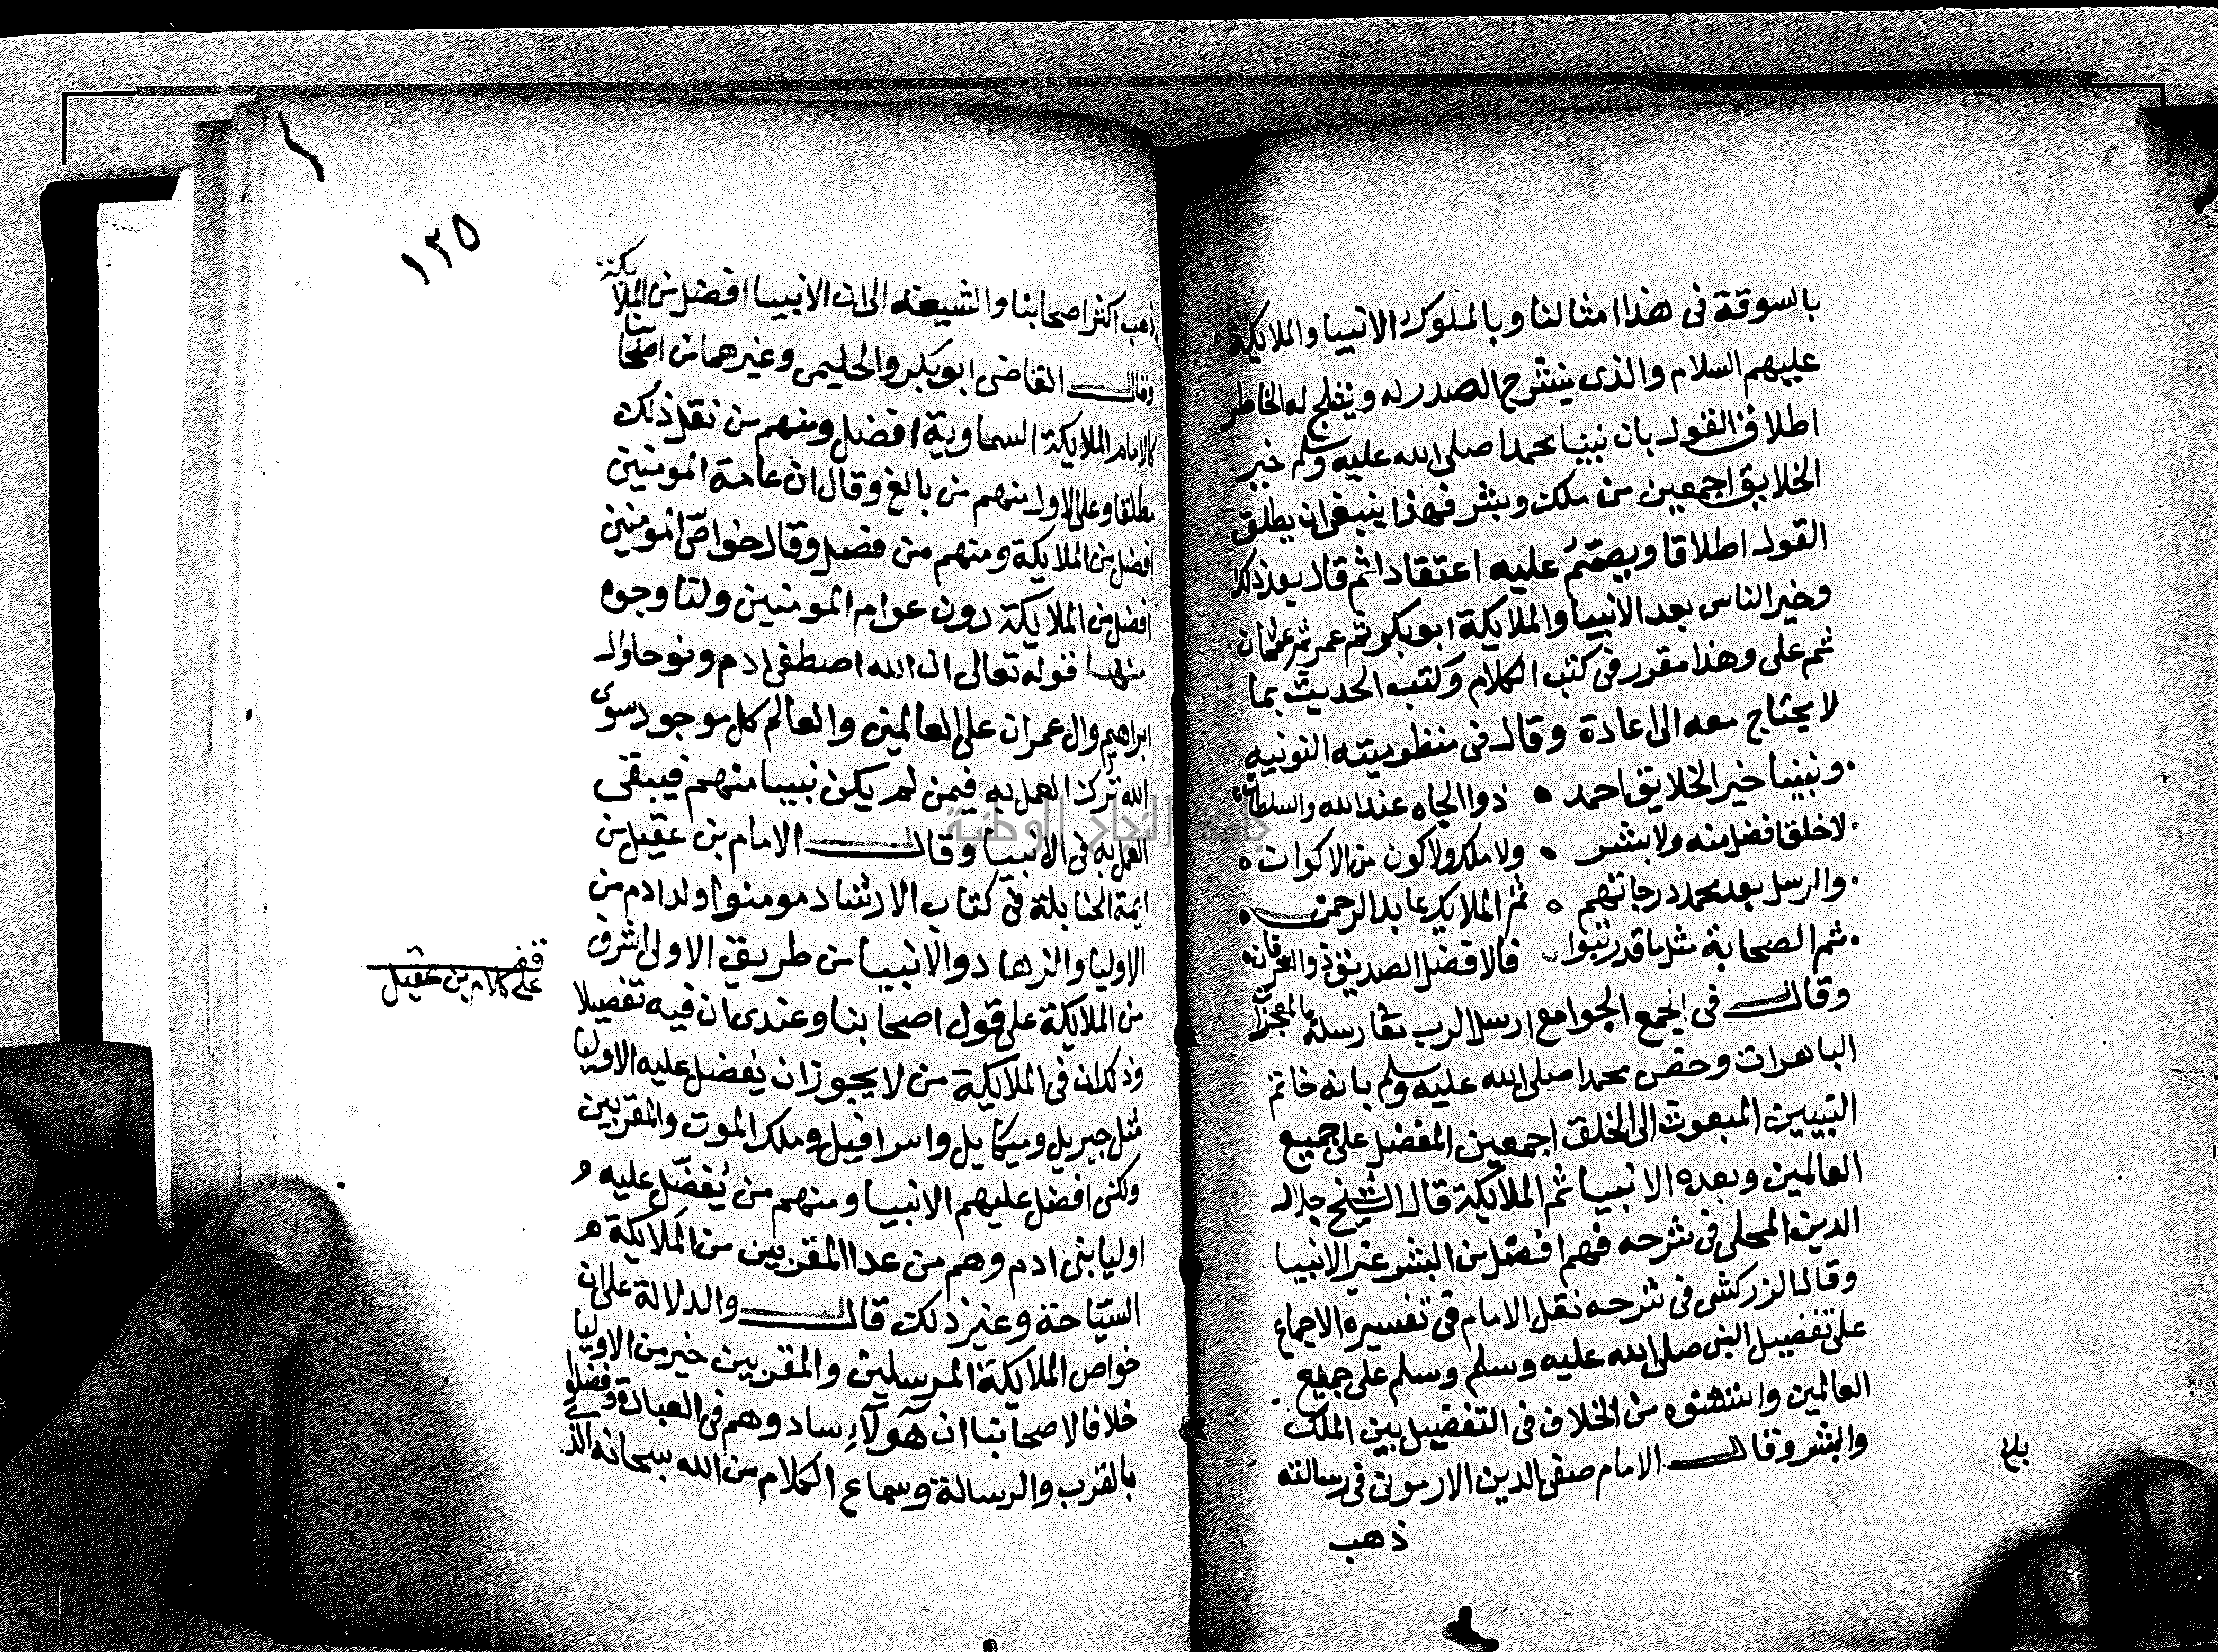 بالسوقة فى هذا امثالنا وبالملوك الانبيا والملايكة
عليهم السلام والذى ينشرح الصدر له ويثلج له الخاطر
اطلاق القول بان نبينا محمدا صلى الله عليه وسلم خير
الخلايق اجمعين من ملك وبشر فهذا ينبغى ان يطلق
القول اطلاقا ويصمّم عليه اعتقادا ثم قال بعد ذلك
وخير الناس بعد الانبيا والملايكة ابو بكر ثم عمر ثم عثمان
ثم على وهذا مقرر فى كتب الكلام وكتب الحديث بما
لا يحتاج معه الى اعادة وقال فى منظوميته النونيه
ونبينا خير الخلايق احمد ٥ ذوا الجاه عند الله والسلطان
لا خلق افضل منه ولا بشر ٥ ولا ملك ولا كون من الاكوان ٥
والرسل بعد محمد درجاتهم ٥ ثم الملايك عابد الرحمن ٥
ثم الصحابة مثل ما قد رتبوا فالافضل الصديق ذو العرفان
وقال فى جمع الجوامع ارسل الرب تعا رسله بالمعجزات
الباهرات وخص محمدا صلى الله عليه وسلم بانه خاتم
النبيين المبعوث الى الخلق اجمعين المفضل على جميع
العالمين وبعده الانبيا ثم الملايكة قال الشيخ جلال
الدين المحلى فى شرحه فهم افضل من البشر غير الانبيا
وقال الزركشى فى شرحه نقل الامام فى تفسيره الاجماع
على تفضيل النبى صلى الله عليه وسلم وسلم على جميع
العالمين واستثنوه من الخلاف فى التفضيل بين الملك
والبشر وقال الامام صفى الدين الارموى فى رسالته
ذهب
بلغ
١٢٥
ذهب اكثر اصحابنا والشيعة الى ان الانبيا افضل من الملايكة
وقال القاضى ابو بكر والحليمى وغيرهما من اصحابنا
كالامام الملايكة السماوية افضل ومنهم من نقل ذلك
مطلقا وعلى الاول منهم من بالغ وقال ان عامة المومنين
افضل من الملايكة ومنهم من فصل وقال خواصّ المومنين
افضل من الملايكة دون عوام المومنين ولنا وجوه
منها قوله تعالى ان الله اصطفى ادم ونوحا وال
ابراهيم وال عمران على العالمين والعالم كل موجود سوى
الله تُرك العمل به فيمن لم يكن نبيا منهم فيبقى
العمل به فى الانبيا وقال الامام بن عقيل من
ايمة الحنابلة فى كتاب الارشاد مومنوا ولد ادم من
الاوليا والزهاد والانبيا من طريق الاولى اشرف
من الملايكة على قول اصحابنا وعندى ان فيه تفصيلا
وذلك ان فى الملايكة من لا يجوز ان يفضل عليه الاوليا
مثل جبريل وميكاييل واسرافيل وملك الموت والمقربين
ولكنى افضل عليهم الانبيا ومنهم من يُفضّل عليه
اوليا بنى ادم وهم من عدا المقربين من الملايكة
السيّاحة وغير ذلك قال والدلالة على ان
خواص الملايكة المرسلين والمقربين خير من الاوليا
خلافا لاصحابنا ان هَوُلآءِ ساووهم فى العبادة وفضلوا
بالقرب والرسالة وسماع الكلام من الله سبحانه
قف
على كلام بن عقيل
جامعة النجاح الوطنية